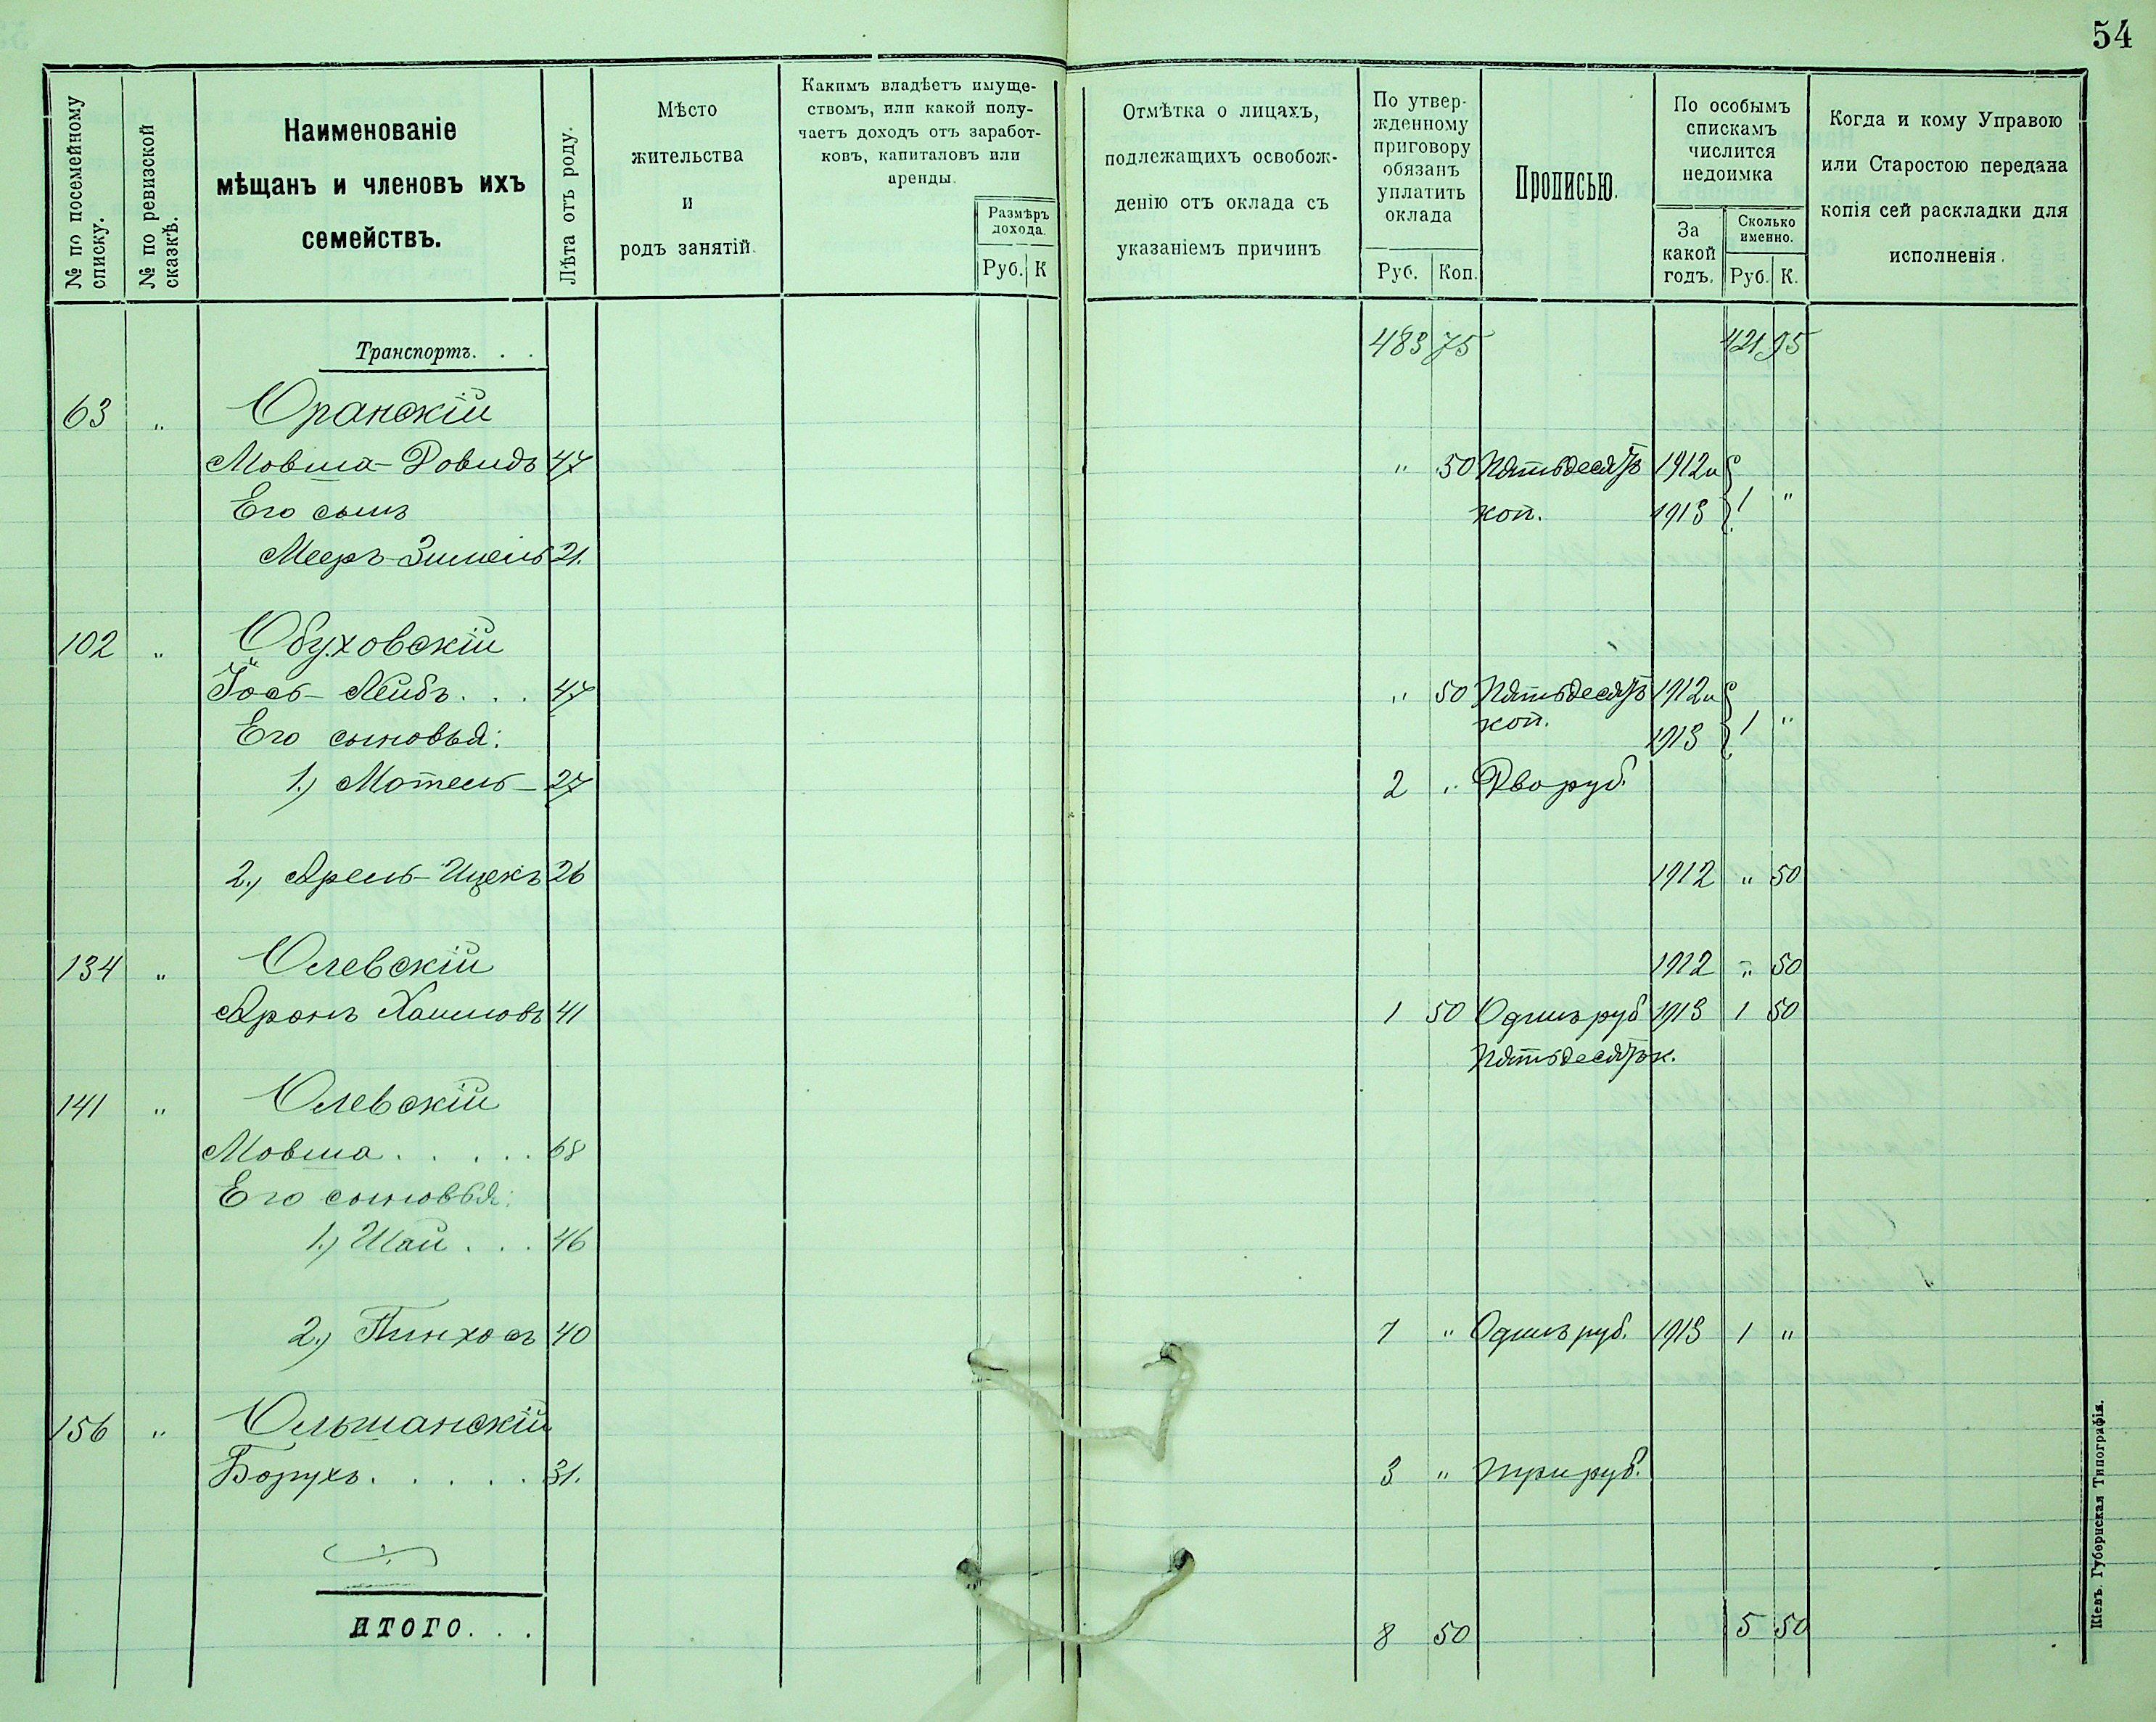 54
№ по посемейному списку.
№ по ревизской сказкѣ.
Наименованіе
мѣщанъ и членовъ ихъ
семействъ.
Лѣта отъ роду.
Мѣсто
жительства
и
родъ занятій.
Какимъ владѣетъ имуще-
ствомъ, или какой полу-
чаетъ доходъ отъ заработ-
ковъ, капиталовъ или
аренды.
Размѣръ
дохода.
Руб. К
Отмѣтка о лицахъ,
подлежащихъ освобож-
денію отъ оклада съ
указаніемъ причинъ
По утвер-
жденному
приговору
обязанъ
уплатить
оклада
Руб. Коп.
Прописью.
По особымъ
спискамъ
числится
недоимка
За
какой
годъ.
Сколько
именно.
Руб. К.
Когда и кому Управою
или Старостою передана
копія сей раскладки для
исполненія.
Транспортъ. . . 483 75 421 95
63 " Оранскій
Мовша-Довидъ 47 " 50 Пятьдесятъ 1912 и
Его сынъ коп. 1913 } 1 "
Мееръ-Зимель 21.
102 " Обуховскій
Іось-Лейбъ . . . 47 " 50 Пятьдесятъ 1912 и
Его сыновья: коп. 1913 } 1 "
1.) Мотель - 27 2 " Два руб.
2.) Арель-Ицекъ 26 1912 " 50
134 " Олевскій 1912 " 50
Аронъ Хаимовъ 41 1 50 Одинъ руб 1913 1 50
Пятьдесятъ к.
141 " Олевскій
Мовша . . . . . 68
Его сыновья:
1.) Шай . . . 46
2.) Пинхосъ 40 1 " Одинъ руб. 1913 1 "
156 " Ольшанскій
Борухъ . . . . . 31. 3 " три руб.
ИТОГО. . . 8 50 5 50
Кіевъ. Губернская Типографія.